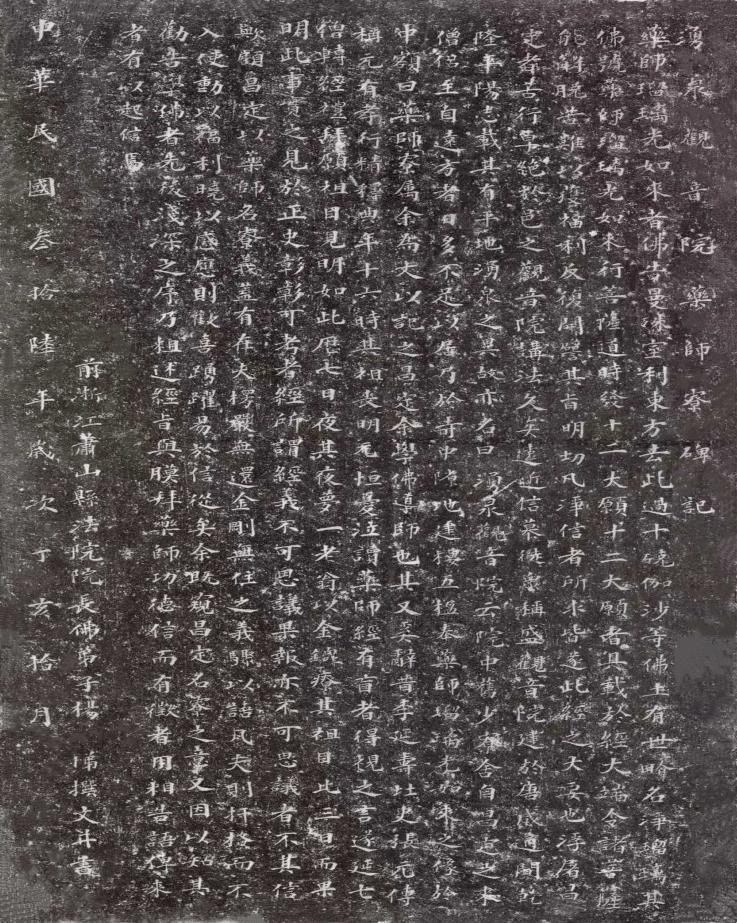 湧泉觀音院藥師寮碑記
藥師瑠璃光如來者佛告曼殊室利東方去此過十殑伽沙等佛土有世界名淨瑠璃其
佛號藥師瑠璃光如來行菩薩道時發十二大願十二大願者具載於經大端令諸菩薩
能解脫苦難以復福利反復開譬其旨明切凡淨信者所求皆遂此經之大要也浮屠昌
定者苦行卓絕於邑之觀音院講法久矣遠近信慕徒眾稱盛觀音院建於唐咸通間乾
隆年陽志載其有平地湧泉之異故亦名曰湧泉觀音院云院中舊少寮舍自昌定之來
僧侶至自遠方者日多不足以居乃於寺中隙地建樓五楹奉藥師瑠璃光如來之像於
中顏曰藥師寮屬余為文以記之昌定余學佛導師也其又奚辭昔李延壽北史張元傳
稱元有孝行精釋典年十六時其祖喪明元恒憂泣讀藥師經有盲者得視之言遂延七
僧轉經禮拜願祖目見明如此歷七日夜其夜夢一老翁以金鎞療其祖目比三日而果
明此事實之見於正史彰彰可考者經所謂經義不可思議果報亦不可思議者不其信
歟顧昌定以藥師名寮義蓋有在夫楞嚴無還金剛無住之義驟以語凡夫則扞格而不
入使動以福利曉以感應則歡喜踴躍易於信從矣余既窺昌定名寮之意又因以知其
勸善學佛者先後淺深之序乃粗述經旨與膜拜藥師功德信而有徵者用相告語俾來
者有以起信焉
前浙江蕭山縣法院院長佛弟子楊 悌撰文并書
中華民國叁拾陸年歲次丁亥拾月